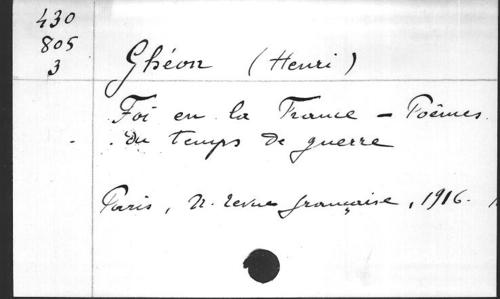 430
805
3
Ghéon (Henri)
Foi en la France - Poèmes
du temps de guerre
Paris, N. revue française, 1916.